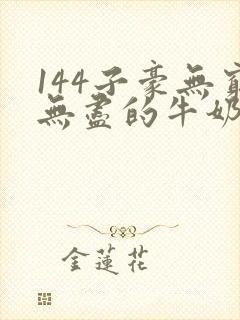 144子豪無窮
無盡的牛奶
金蓮花